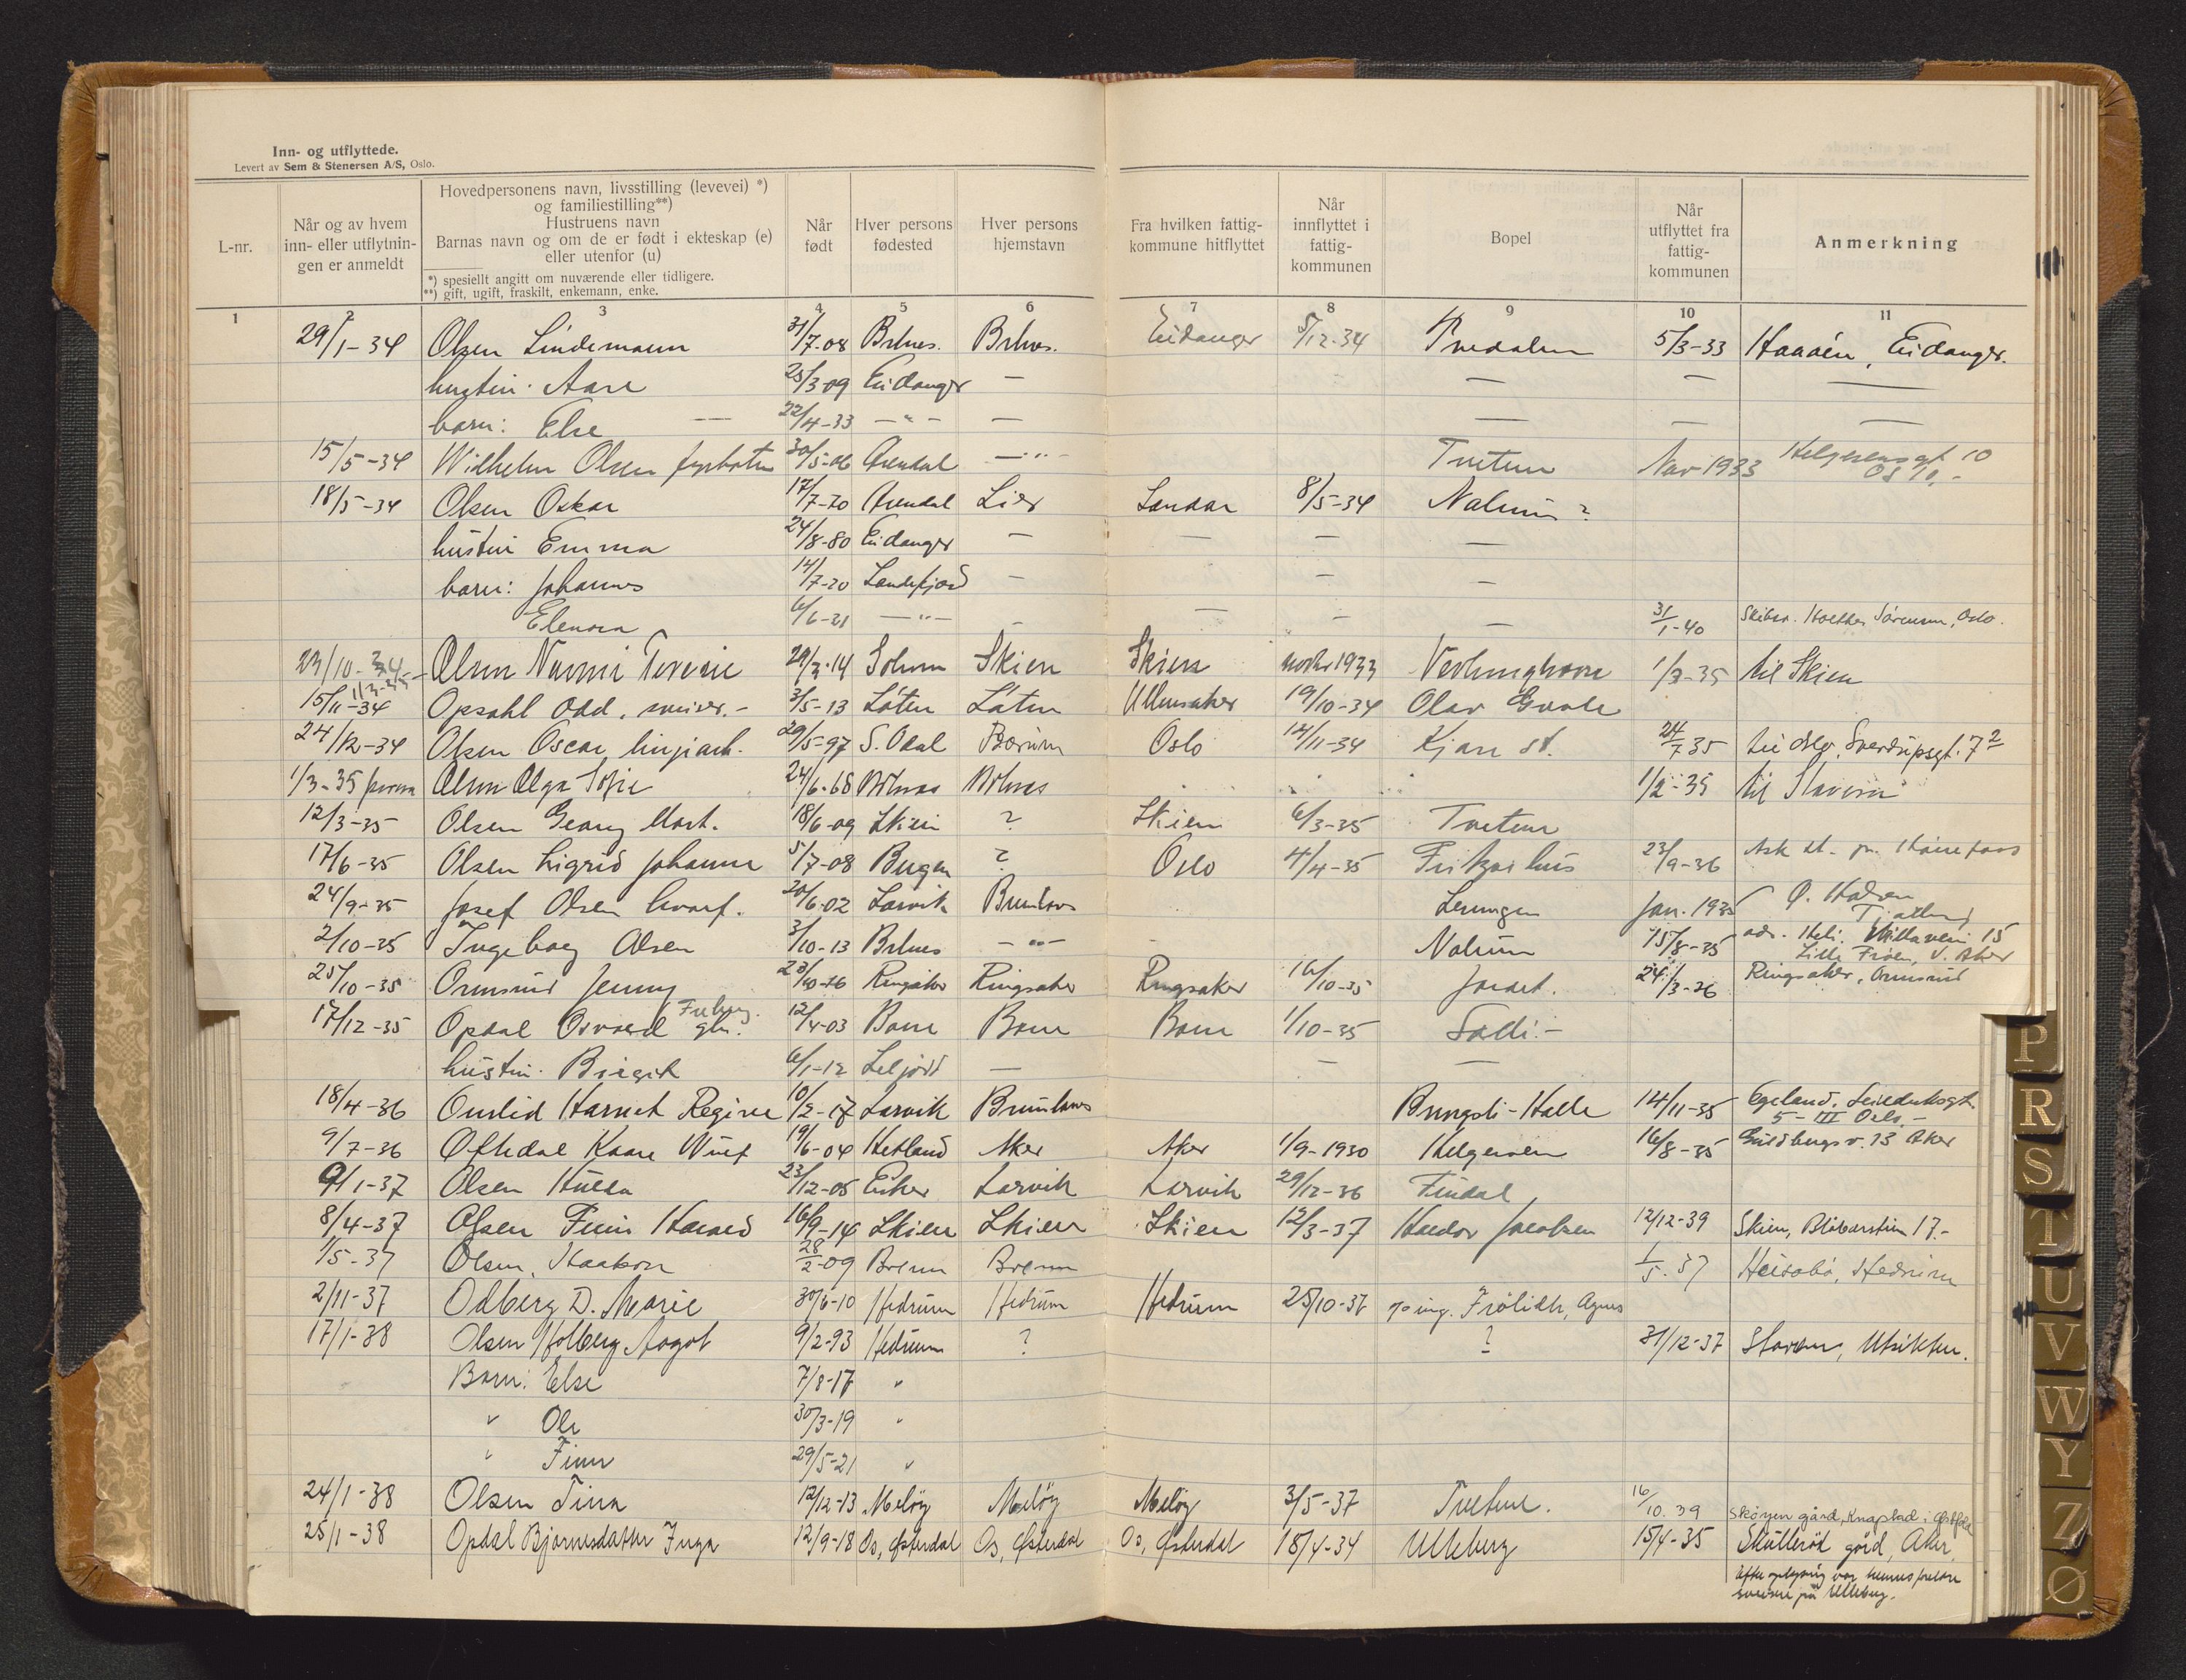 Inn- og utflyttede.
Levert av Sem & Stenersen A/S, Oslo.
L-nr.
Når og av hvem inn- eller utflytnin- gen er anmeldt
Hovedpersonens navn, livsstilling (levevei) *) og familiestilling**) Hustruens navn Barnas navn og om de er født i ekteskap (e) eller utenfor (u)
*) spesiellt angitt om nuværende eller tidligere.
**) gift, ugift, fraskilt, enkemann, enke.
Når født
Hver persons fødested
Hver persons hjemstavn
Fra hvilken fattig- kommune hitflyttet
Når innflyttet i fattig- kommunen
Bopel
Når utflyttet fra fattig- kommunen
Anmerkning
1 2 3 4 5 6 7 8 9 10 11
29/1-34 Olsen Lindemann 31/7-08 Brlnes. Brlnes. Eidanger 5/12-34 5/3-33 Eidanger.
hustru. Aase 25/3-09 Eidanger — — — —
barn: Else — 22/4-33 — " — — — — —
15/5-34 Wilhelm Olsen fyrbøter 30/5-06 Arendal — " — Tveten Nov 1933 Helgesensgt 10
18/5-34 Olsen Oskar 17/7-70 Arendal Lier Sandar 8/5-34 Nalum ?
hustru Emma 24/8-80 Eidanger — — — —
barn: Johannes 14/7-20 Sandefjord — — —
Elenora 6/6-21 — " — — — — — 31/1-40 Oslo.
23/10-34 Olsen Nanni Teresie 29/3-14 Solum Skien Skien 1933 1/3-35 til Skien
15/11-34 Opsahl Odd, sveiser.- 3/5-13 Løten Løten Ullensaker 19/10-34 Olav Gvale
24/12-34 Olsen Oscar linjearb. 29/5-97 S. Odal Bærum Oslo 12/11-34 Kjose st. 24/7 35 til Oslo, Sverdrupsgt. 7²
1/3-35 Olsen Olga Sofie 24/6-68 Brlnes Brlnes 1/2-35 til Stavern
12/3-35 Olsen Georg Mart. 18/6-09 Skien ? Skien 6/3-35 Tveten
17/6-35 Olsen Sigrid Johanne 5/7-08 Bergen ? Oslo 4/4-35 Fritzøehus 23/9-36 Ask st. pr. Hønefoss
24/9-35 Josef Olsen 20/6-02 Larvik Brunlanes Jan. 1935
2/10-35 Ingeborg Olsen 3/10-13 Brlnes — " — Nalum 15/8-35 15 Lille Frøen, V. Aker
25/10-35 Ormsrud Jenny 23/10-16 Ringsaker Ringsaker Ringsaker 16/10-35 Jordet. 24/3-36 Ringsaker, Ormsrud
17/12-35 Opdal Osvald 12/4-03 Bøm Bøm Bøm 1/10-35
hustru. Birgit 6/1-12 Seljord — — —
18/4-36 Omlid Harriet Regine 10/2-17 Larvik Brunlanes 14/11-35 Egeland, 5-III Oslo.-
9/7-36 Oftedal Kaare 19/6-04 Hetland Aker Aker 1/9-1930 Helgeroen 16/8-35 Guldbergsv. 13 Aker
9/1-37 Olsen Hulda 23/12-05 Eiker Larvik Larvik 29/12-36
8/4-37 Olsen Finn Harald 16/9-14 Skien Skien Skien 12/3-37 Haldor Jacobsen 12/12-39 Skien, Blåbærstien 17.-
1/5-37 Olsen, Haakon 28/2-09 1/5. 37 Hedrum
2/11-37 Odberg D. Marie 30/6-10 Hedrum Hedrum Hedrum 25/10-37 ing. Frölich, Agnes
17/1-38 Olsen Holberg Aagot 9/2-93 Hedrum ? ? 31/12-37 Stavern,
Barn: Else 7/8-17 "
" Ole 30/3-19 "
" Finn 29/5-21 "
24/1-38 Olsen Tina 12/12-13 Meløy Meløy Meløy 3/5-37 Tveten. 16/10. 39 Skøyen gård, Knapstad i Østfold
25/1-38 Opdal Bjørnesdatter Inga 12/9-18 Os, Østerdal Os, Østerdal Os, Østerdal 18/4-34 Ulleberg 15/4-35 Skullerød gård, Aker.
Efter oplysning var hennes foreldre sveisere på Ulleberg.
P
R
S
T
U
V
W
Y
Z
Ø